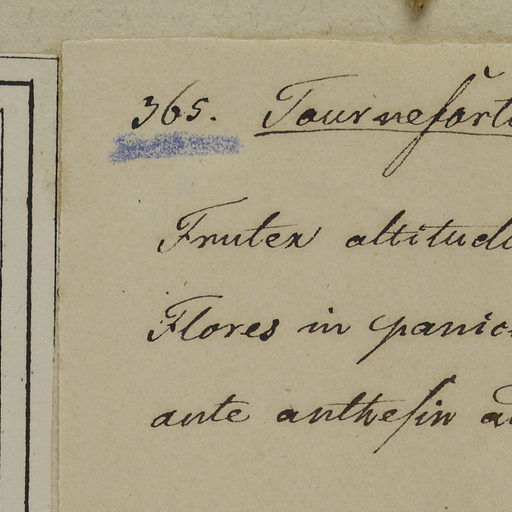 365. Tourneforti
Frutex altitudi
Flores in panic
ante antheſin a